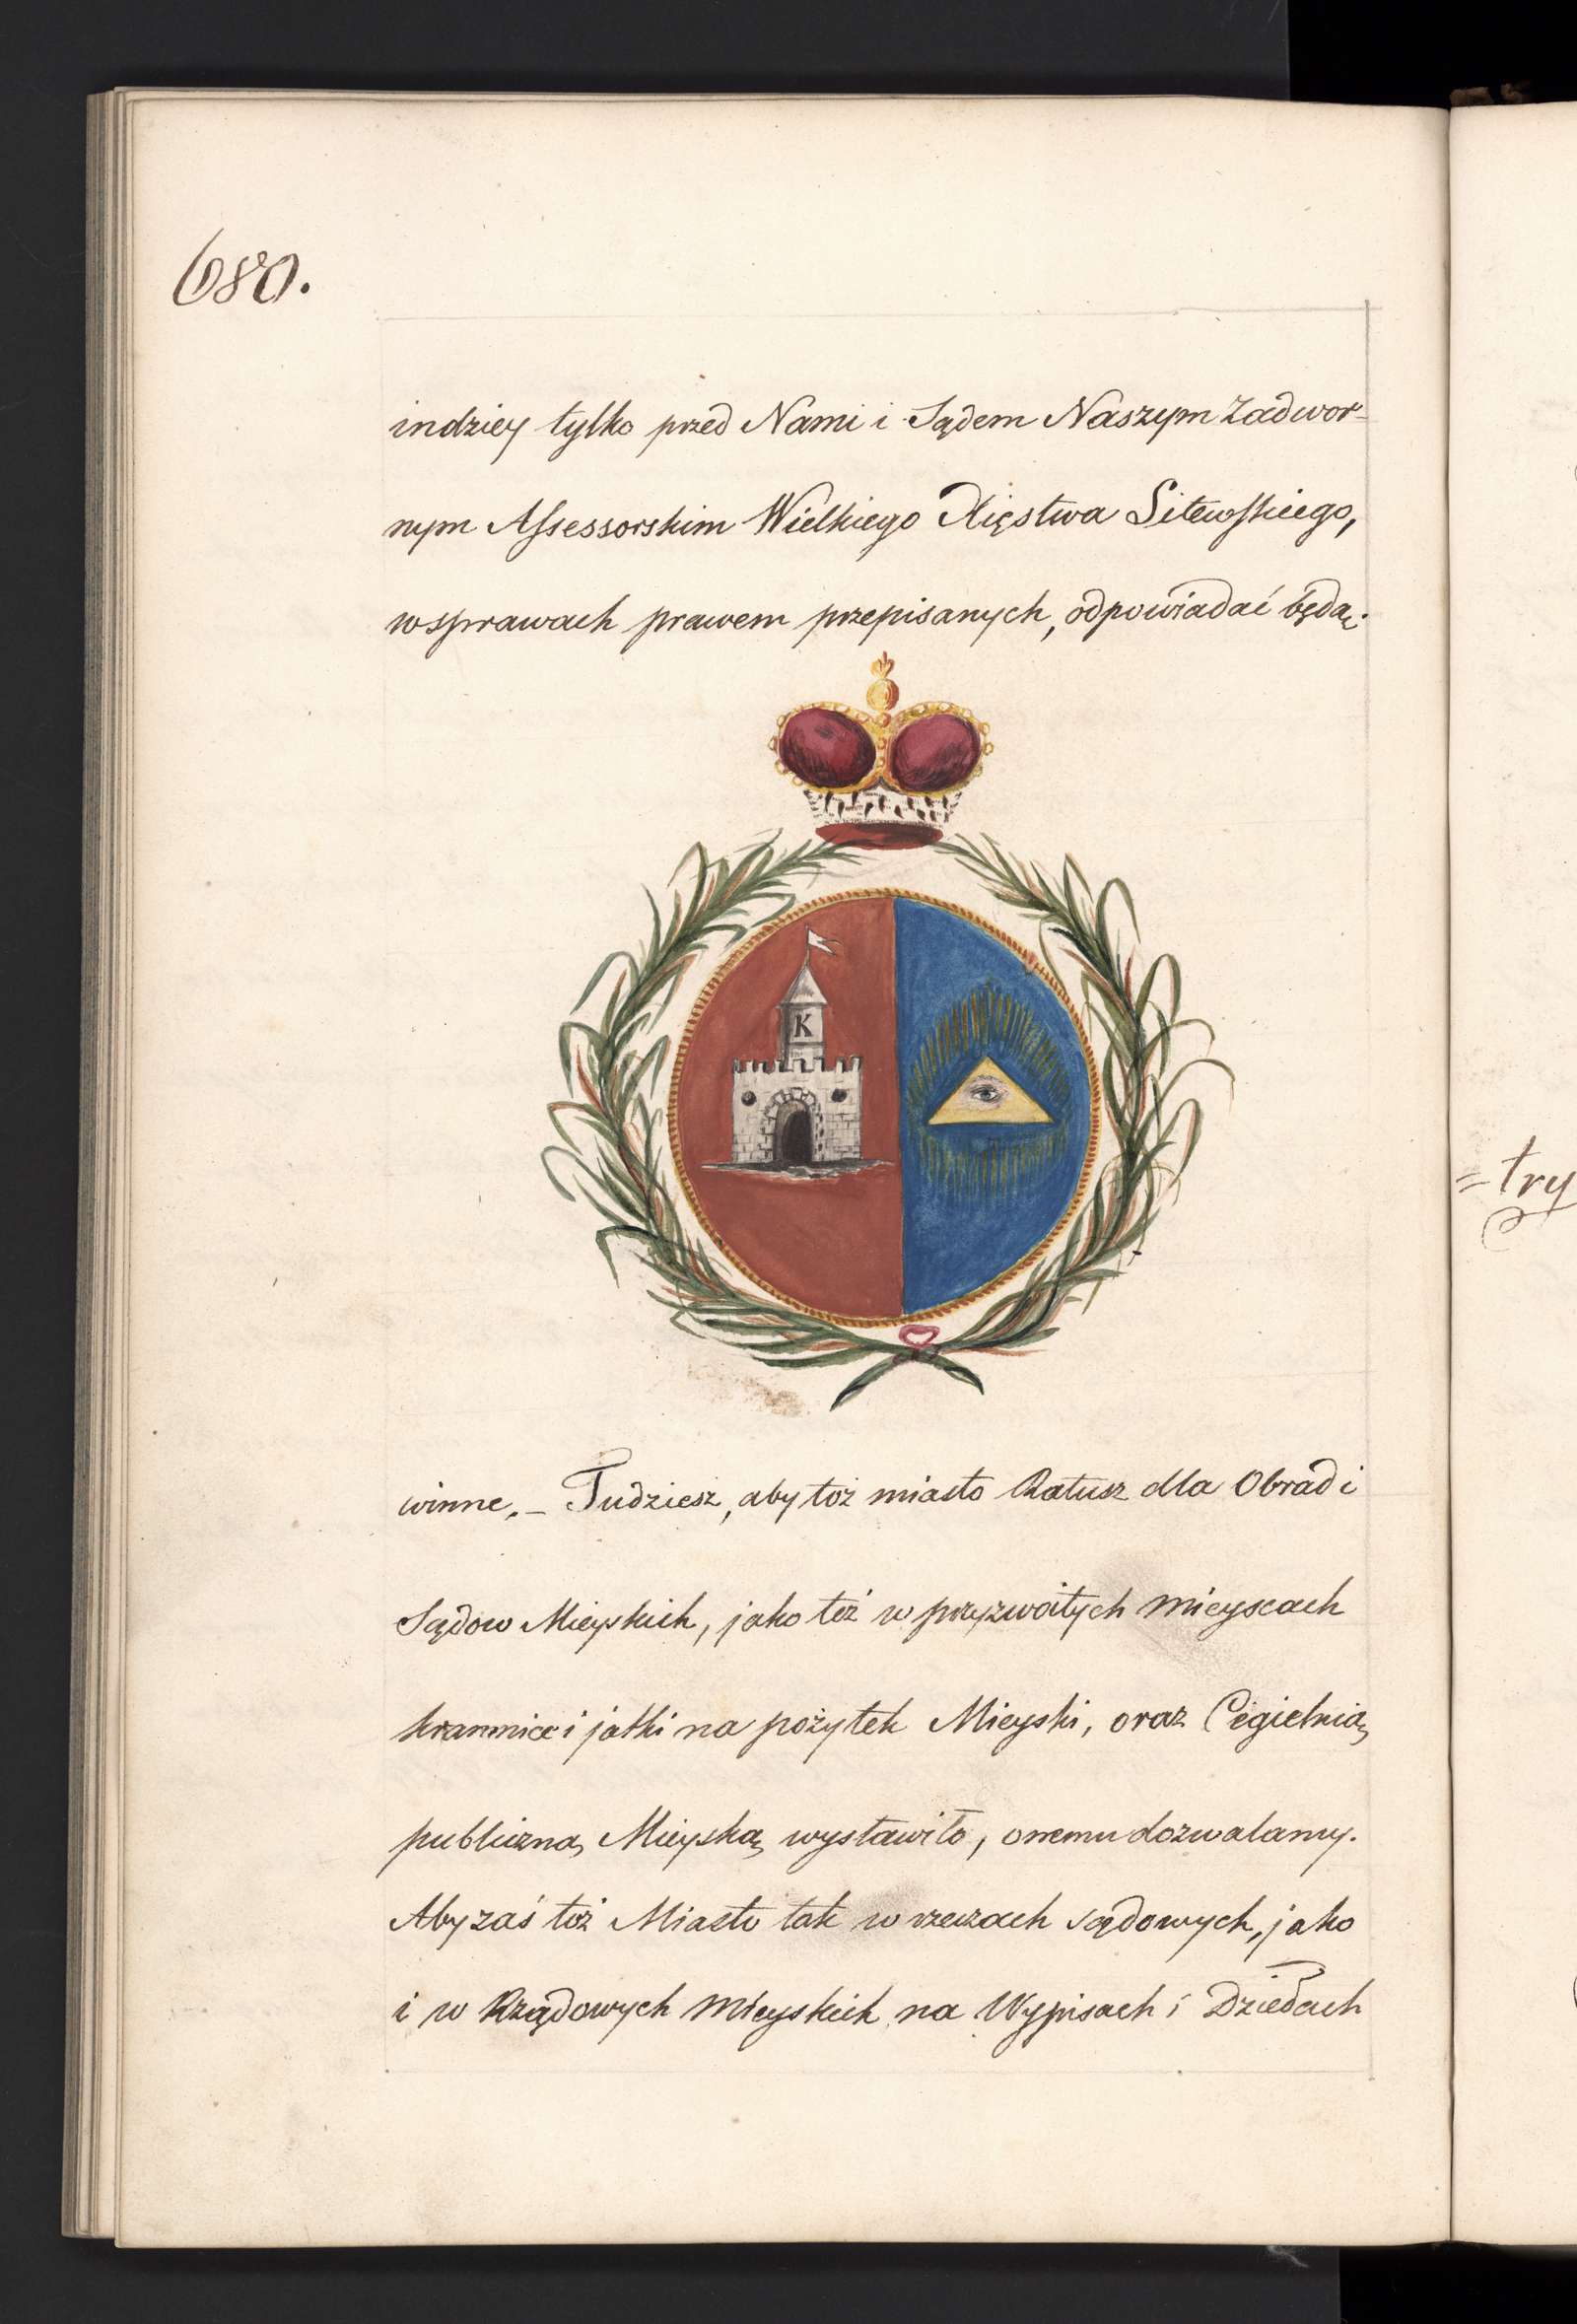 680.
indziey tylko przed Nami i Sądem Naszym Zadwor-
nym Assessorskim Wielkiego Xięstwa Litewskiego,
w sprawach prawem przepisanych, odpowiadać będą
K
winne. – Tudziesz, aby toż miasto Ratusz dla Obrad i
Sądow Mieyskich, jako też w przyzwoitych mieyscach
kramnice i jatki na pożytek Mieyski, oraz Cegielnią
publiczną Mieyską wystawiło, onemu dozwalamy.
Aby zaś toż Miasto tak w rzeczach sądowych, jako
i w Rządowych Mieyskich na Wypisach i Dziełach
=try